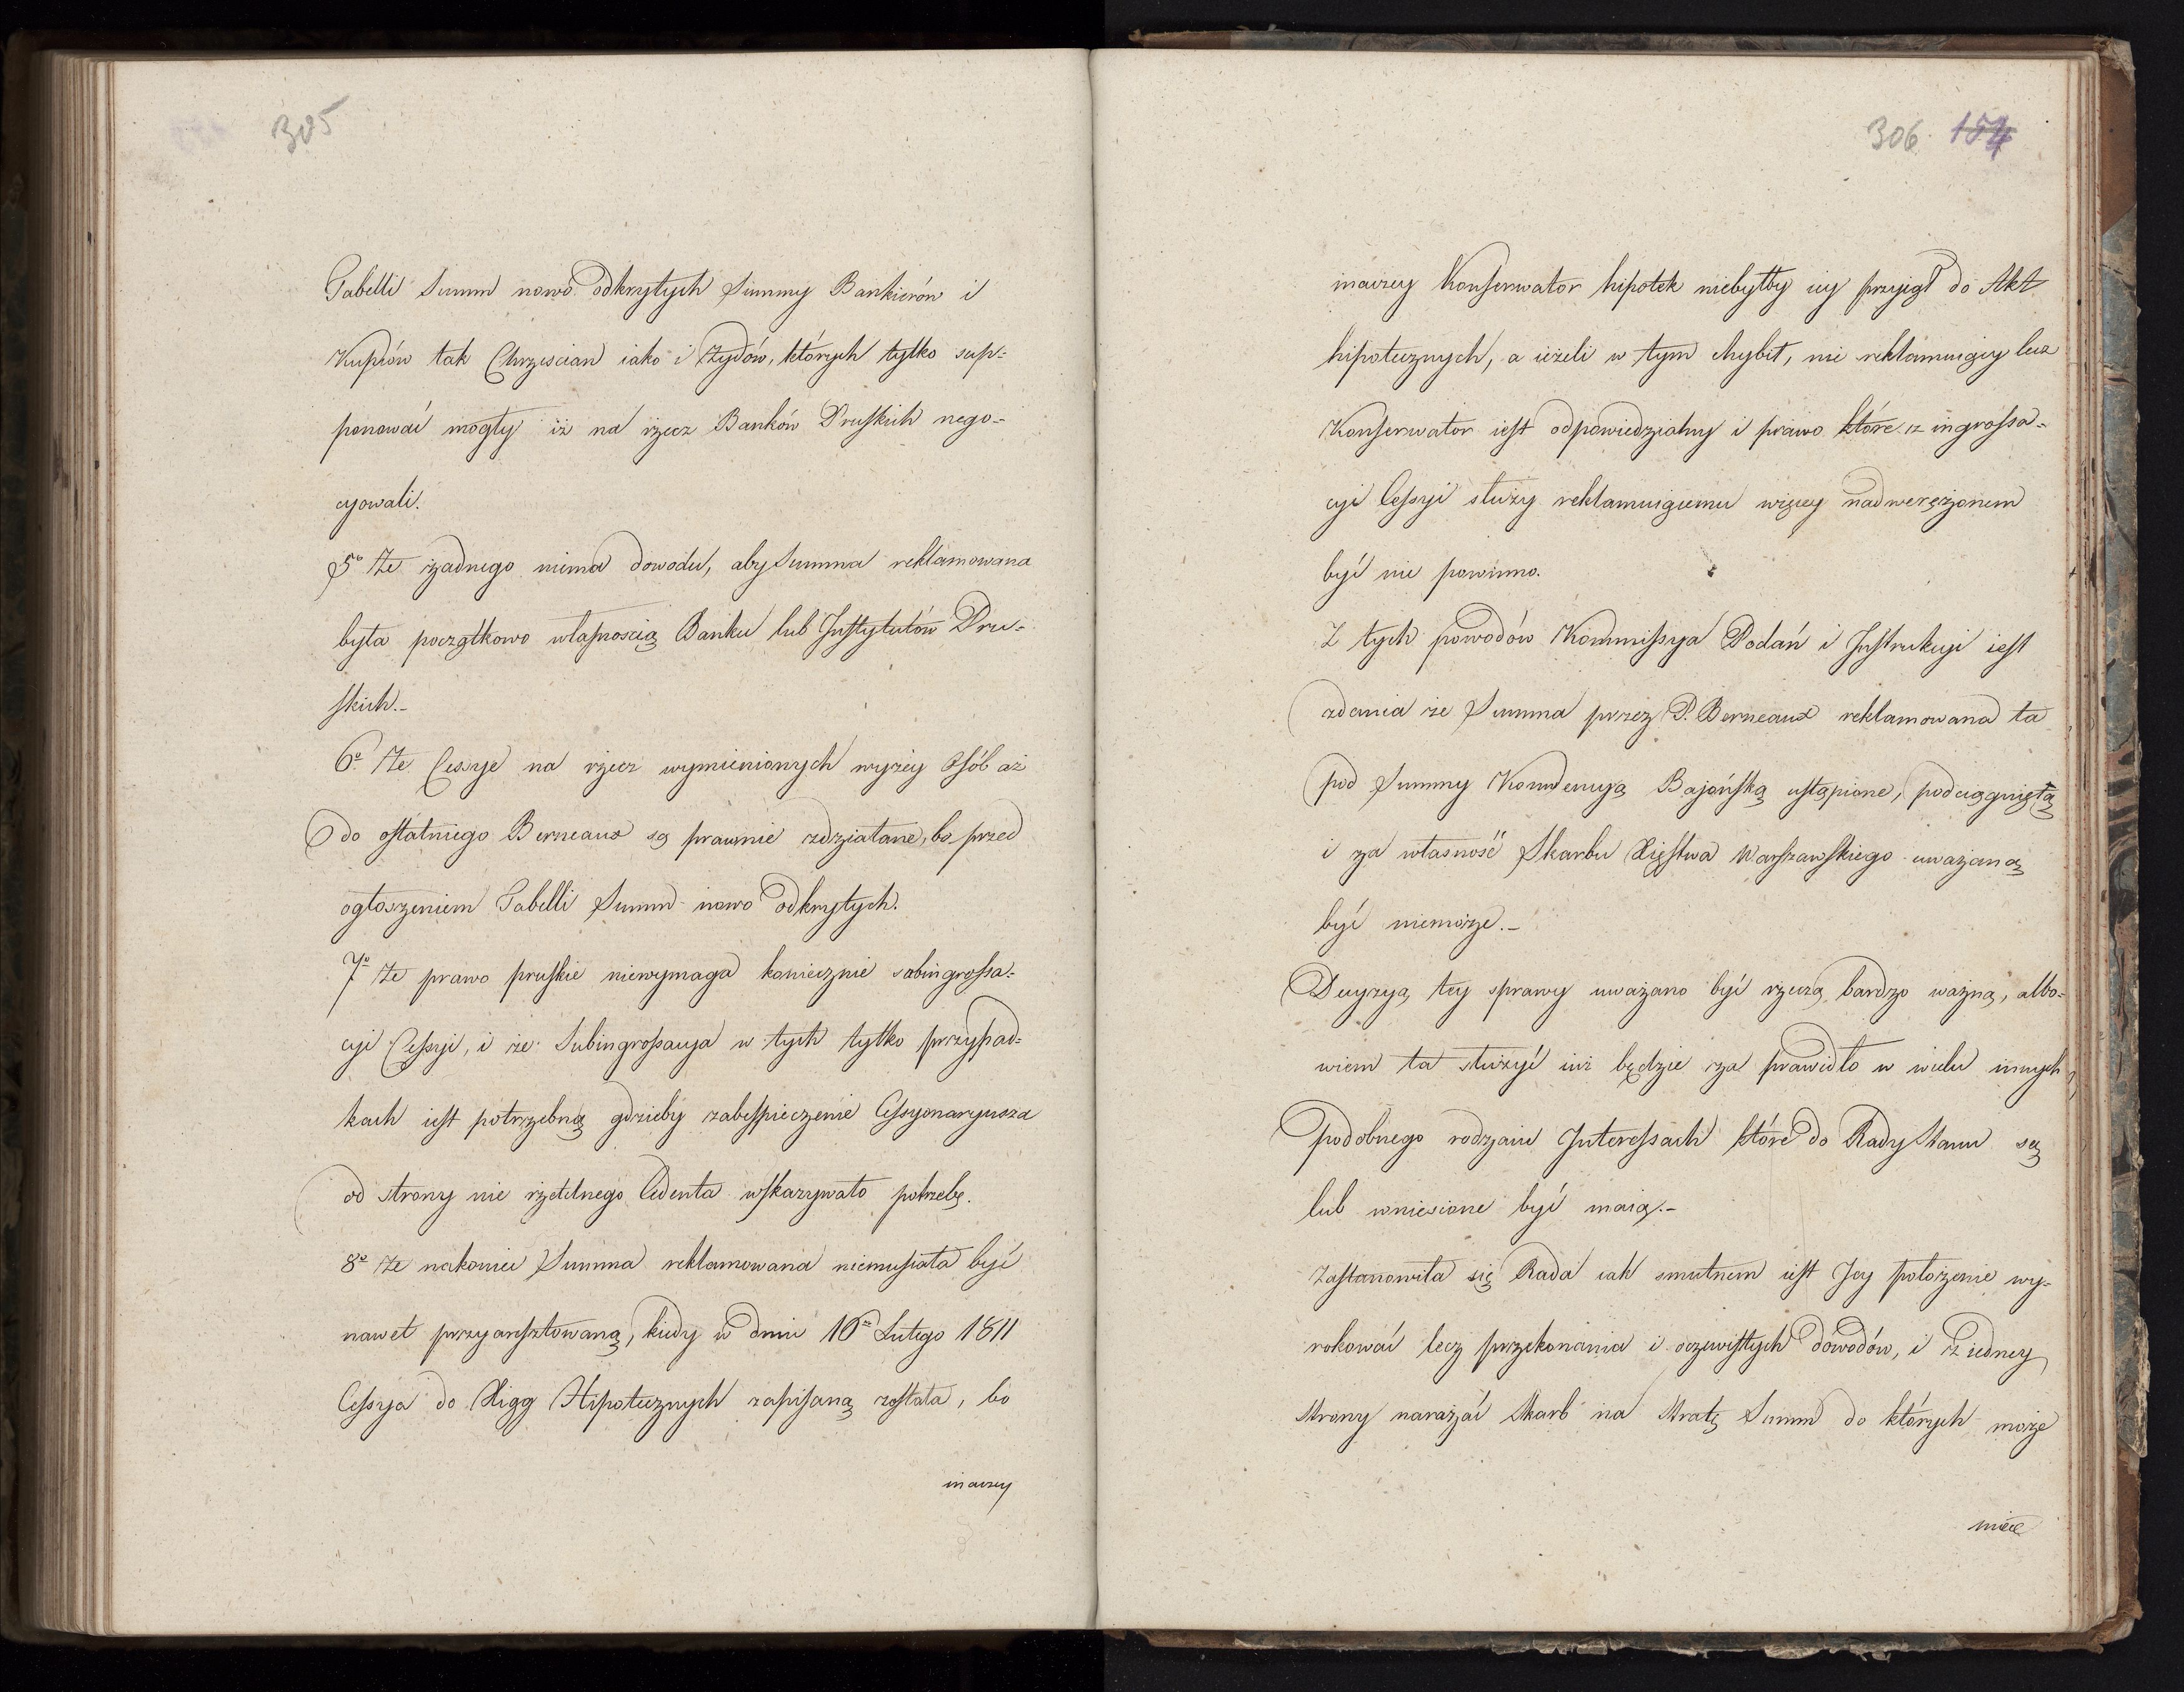 305
Tabelli Summ nowo odkrytych Summy Bankierów i
Kupców tak Chrzescian iako i Żydów, których tylko sup-
ponować mogły iż na rzecz Banków Pruskich nego-
cyowali.
5º Że żadnego niema dowodu, aby Summa reklamowana
była początkowo własnoscią Banku lub Instytutów Pru-
skich.-
6º Że Cessye na rzecz wymienionych wyżey Osób aż
do ostatniego Berneaux są prawnie zdziałane, bo przed
ogłoszeniem Tabelli Summ nowo odkrytych.
7º Że prawo pruskie niewymaga koniecznie subingrossa-
cyi Cessyi, i że Subingrossacya w tych tylko przypad-
kach iest potrzebną gdzieby zabespieczenie Cessyonaryusza
od strony nie rzetelnego Cedenta wskazywało potrzebę.
8º Że nakoniec Summa reklamowana niemusiała być
nawet przyaresztowaną, kiedy w dniu 16º Lutego 1811
Cessya do Xiąg Hipotecznych zapisaną została, bo
inaczey
306 154
inaczey Konserwator hipotek niebyłby iey przyiął do Akt
hipotecznych, a ieżeli w tym chybił, nie reklamuiący lecz
Konserwator iest odpowiedzialny i prawo które z ingrossa-
cyi Cessyi służy reklamuiącemu więcey nadwerężonem
być nie powinno.
Z tych powodów Kommissya Podań i Instrukcyi iest
zdania że Summa przez P. Berneaux reklamowana ta
pod Summy Konwencyą Bajońską ustąpione, podciągniętą
i za własność Skarbu Xięstwa Warszawskiego uważaną
być niemoże.-
Decyzyą tey sprawy uważano być rzeczą bardzo ważną, albo-
wiem ta służyć iuż będzie za prawidło w wielu innych
podobnego rodzaiu Interessach które do Rady Stanu są
lub wniesione być maią.-
Zastanowiła się Rada iak smutnem iest Jey położenie wy-
rokować bez przekonania i oczewistych dowodów, i z iedney
strony narażać Skarb na stratę Summ do których może
mieć